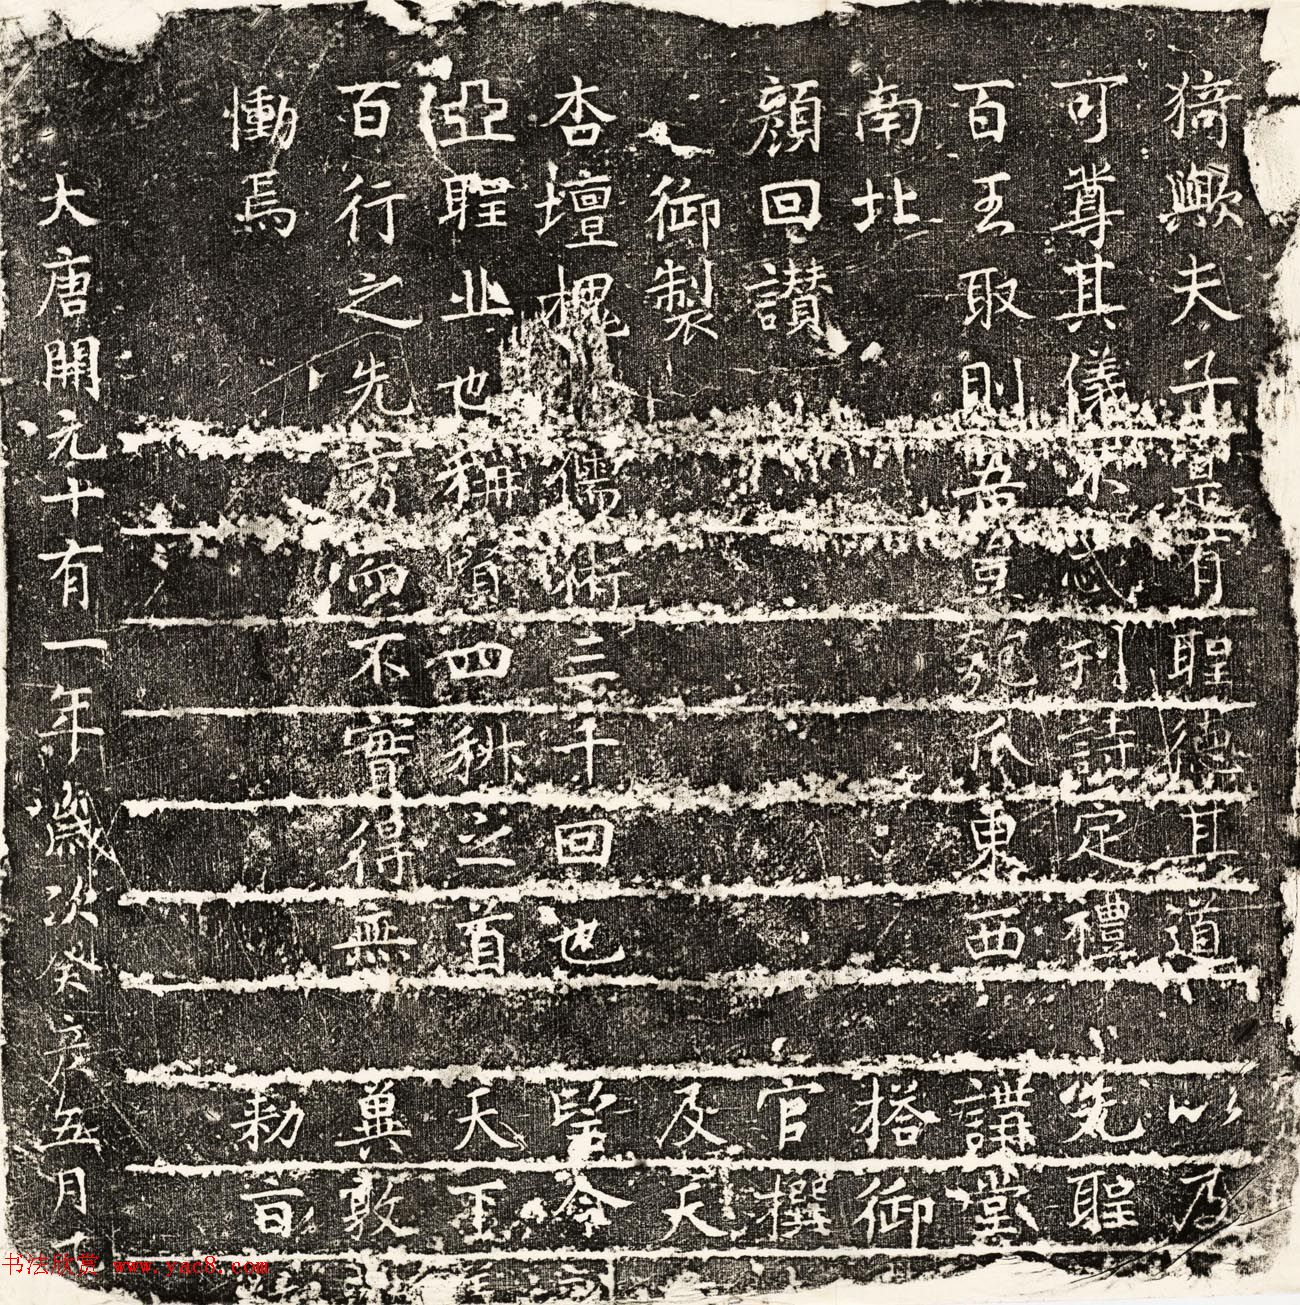 猗歟夫子是有聖德其道 以及
可尊其儀不忒刋詩定禮 先聖
百王取則吾豈匏瓜東西 講堂
南北 搭御
顏回讃 官撰
御製 及天
杏壇槐儒術三千回也 望令
亞聖丘也稱賢四科之首 天
百行之先而不實得無 冀敦
慟焉 勅旨
大唐開元十有一年歲次癸亥五月
书法欣赏 www.yac8.com